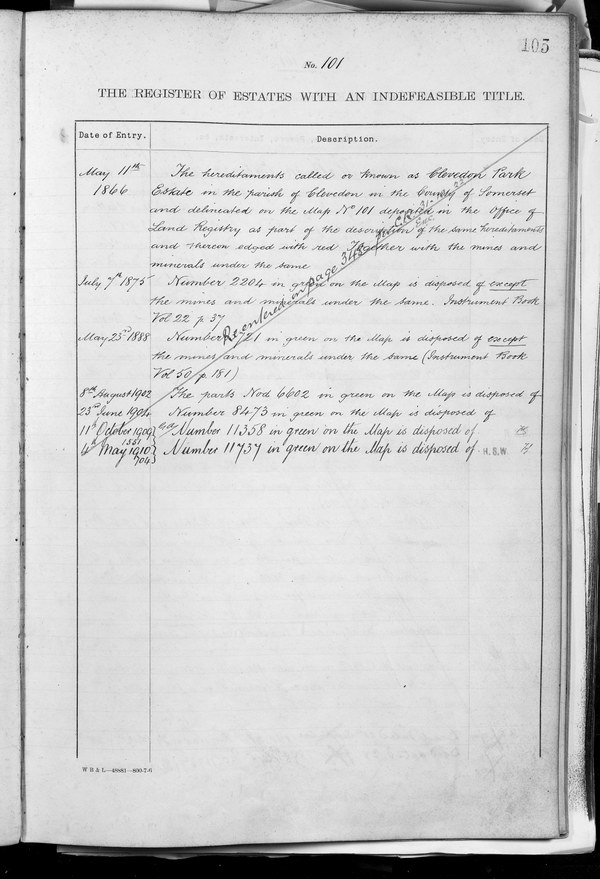 105
No. 101
THE REGISTER OF ESTATES WITH AN INDEFEASIBLE TITLE.
Date of Entry. Description.
May 11th The hereditaments called or known as Clevedon Park
1866 Estate in the parish of Clevedon in the County of Somerset
and delineated on the Map No 101 deposited in the Office of
Land Registry as part of the description of the same hereditaments
and thereon edged with red Together with the mines and
minerals under the same
July 7th 1875 Number 2204 in green on the Map is disposed of except
the mines and minerals under the same. Instrument Book
Vol 22 p 37
May 23rd 1888 Number 4721 in green on the Map is disposed of except
the mines and minerals under the same (Instrument Book
Vol 50 p. 181)
8th August 1902 The parts Nod 6602 in green on the Map is disposed of
23rd June 1904 Number 8473 in green on the Map is disposed of
11th October 1909 Number 11358 in green on the Map is disposed of
1551
4th May 1910 Number 11737 in green on the Map is disposed of H.S.W
704
Re-entered on page 348
W B & L—48881—800.7-6